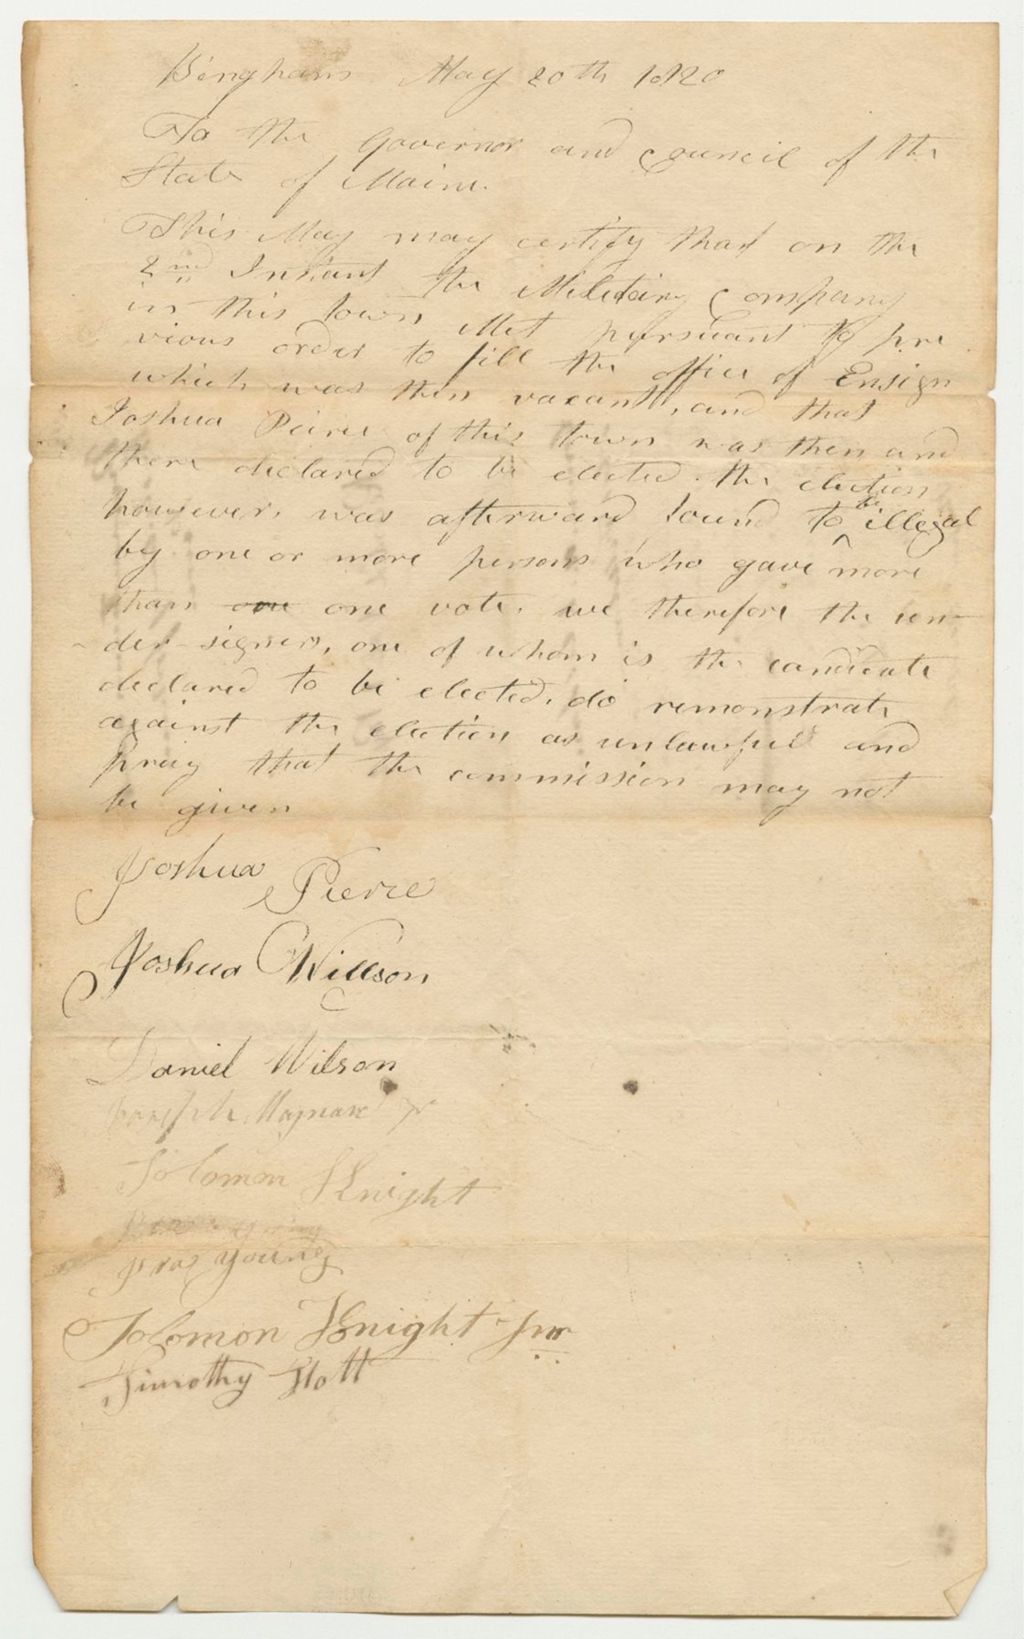 Bingham May 20th 1820
To the Governor and Council of the
State of Maine.
This May may certify that on the
2nd Instant the Military Company
in this town Met pursuant to pre
vious order to fill the office of Ensign
which was then vacant, and that
Joshua Peirce of this town was then and
there declared to be elected. the election
however, was afterward found to be illegal
by one or more persons who gave more
than one one vote. we therefore the un-
der signers, one of whom is the candidate
declared to be elected, do remonstrate
against the election as unlawful and
pray that the commission may not
be given
Joshua Pierce
Joshua Willson
Daniel Wilson
Joseph Maynard Jr
Solomon Knight
Young
Solomon Knight Jnr
Timothy